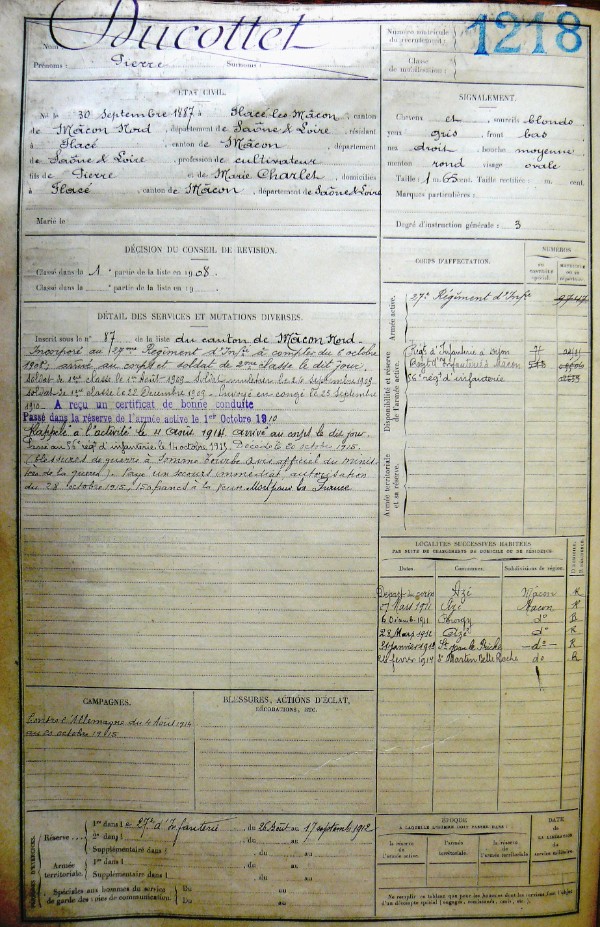 Nom : Ducottet
Prénoms : Pierre Surnoms :
Numéro matricule du recrutement : 1218
Classe de mobilisation :
ÉTAT CIVIL.
Né le 30 Septembre 1887 à Flacé-les-Mâcon, canton
de Mâcon Nord, département de Saône & Loire, résidant
à Flacé, canton de Mâcon, département
de Saône & Loire, profession de cultivateur
fils de Pierre et de Marie Charlet, domiciliés
à Flacé, canton de Mâcon, département de Saône & Loire
Marié le
SIGNALEMENT.
Cheveux et sourcils blonds
yeux gris, front bas
nez droit, bouche moyenne
menton rond visage ovale
Taille : 1 m. 63 cent. Taille rectifiée : m. cent.
Marques particulières :
Degré d'instruction générale : 3
DÉCISION DU CONSEIL DE REVISION.
Classé dans la 1e partie de la liste en 1908.
Classé dans la partie de la liste en 19
DÉTAIL DES SERVICES ET MUTATIONS DIVERSES.
Inscrit sous le n° 87 de la liste du canton de Mâcon Nord
Incorporé au Régiment d'Infie à compter du 8 octobre
1908, arrivé au corps et soldat de 2me classe le dit jour.
Soldat de 1ere classe le 1er Août 1909. Soldat musicien le 24 septembre 1909
Soldat de 1ere classe le 22 Décembre 1909. Envoyé en congé le 25 Septembre
1910. A reçu un certificat de bonne conduite
Passé dans la réserve de l'armée active le 1er Octobre 1910
Rappelé à l'activité le 4 Août 1914 arrivé au corps le dit jour.
Passé au 56e rég d'infanterie le 14 octobre 1915. Décédé le 20 octobre 1915.
(blessures de guerre à Somme Tourbe avis officiel du minis
tère de la guerre). Payé un secours immédiat, autorisation
du 28 octobre 1915, 150 francs à la Mort pour la France
CORPS D'AFFECTATION.
NUMÉROS
Armée active.
27e Régiment d'Infie
Disponibilité et réserve de l'armée active.
Régt d'Infanterie à Dijon
Régt d'Infanterie à Mâcon
56e régt d'infanterie
Armée territoriale et sa réserve.
LOCALITÉS SUCCESSIVES HABITÉES
PAR SUITE DE CHANGEMENTS DE DOMICILE OU DE RÉSIDENCE.
Dates Communes. Subdivisions de région.
Départ du corps Azé Mâcon R
Mars 1911 Azé Macon R
1911 do
23 Mars 1912 Azé do R
Janvier 1913 St Jean le Priche do R
février 1914 St Martin Belle Roche do R
CAMPAGNES.
Contre l'Allemagne du 4 Août 1914
au 20 octobre 1915
BLESSURES, ACTIONS D'ÉCLAT,
DÉCORATIONS, ETC.
Réserve
1re dans le 27e d'Infanterie, du 26 Août au 17 septembre 1912
2e dans l , du au
Supplémentaire dans l , du au
Armée territoriale.
1re dans l , du au
Supplémentaire dans l , du au
Spéciales aux hommes du service
de garde des voies de communication.
Du au
Du au
ÉPOQUE
À LAQUELLE L'HOMME DOIT PASSER DANS :
la réserve de l'armée active.
l'armée territoriale.
la réserve de l'armée territoriale.
DATE
de
LA LIBÉRATION
du service militaire.